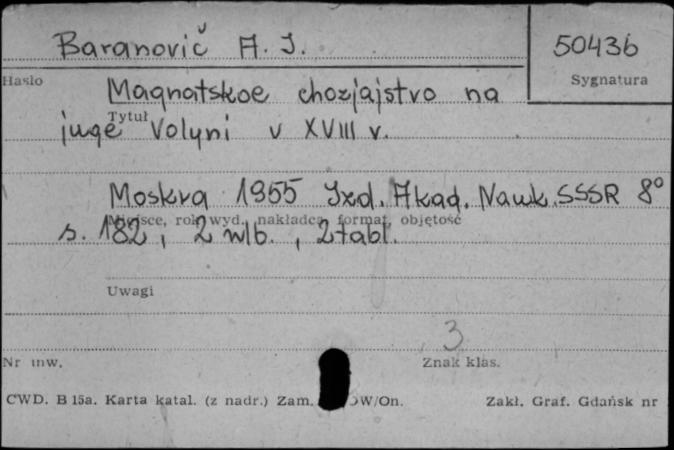 Baranovič A. I.
50436
Hasło
Sygnatura
Magnatskoe chozjajstvo na
Tytuł
juge Volyni v XVIII v.
Moskva 1955 Izd. Akad. Nauk. SSSR 8°
Miejsce, rok wyd., nakładca, format, objętość
s. 182, 2 wlb., 2 tabl.
Uwagi
3
Nr inw.
Znak klas.
CWD. B 15a. Karta katal. (z nadr.) Zam. OW/On.
Zakł. Graf. Gdańsk nr